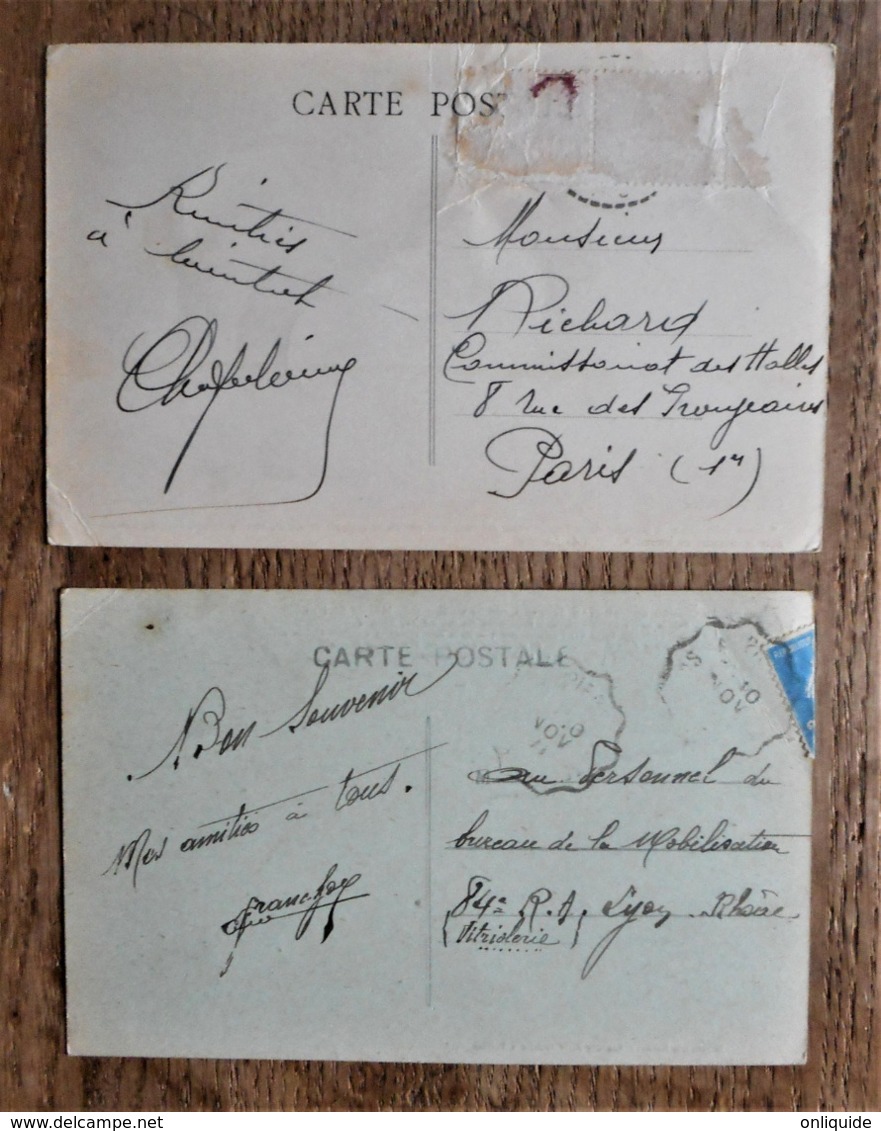 CARTE POST
Amitiés
à bientôt
Monsieur
Richard
Commissariat des Halles
8 rue des Prouvaires
Paris (1er)
CARTE POSTALE
10
NOV
10
NOV
Bon Souvenir
Mes amitiés à tous.
au Personnel du
bureau de la Mobilisation
84e R.A. Lyon Rhône
(Vitriolerie)
delcampe.net
onliquide